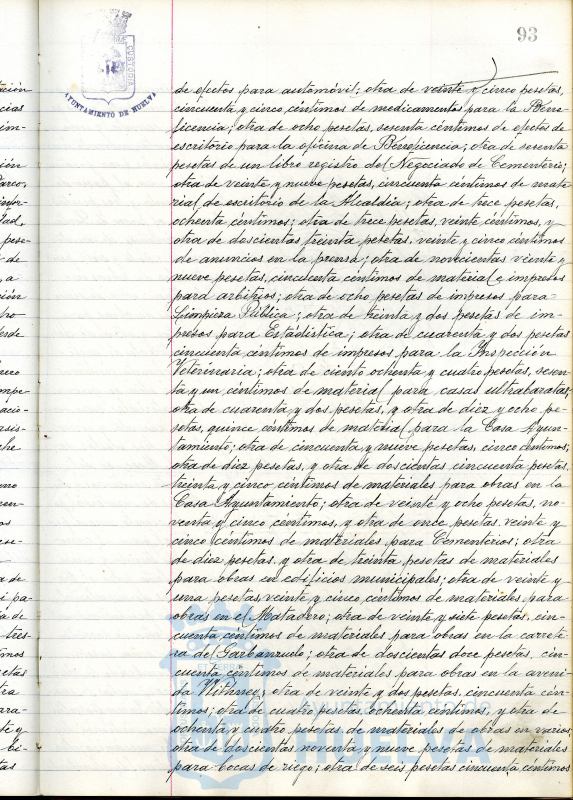 93
AYUNTAMIENTO DE HUELVA
de efectos para automóvil; otra de veinte y cinco pesetas,
cincuenta y cinco céntimos de medicamentos para la Bene-
ficencia; otra de ocho pesetas, sesenta céntimos de efectos de
escritorio para la oficina de Beneficencia; otra de sesenta
pesetas de un libro registro del Negociado de Cementerio;
otra de veinte y nueve pesetas, cincuenta céntimos de mate-
rial de escritorio de la Alcaldía; otra de trece pesetas,
ochenta céntimos; otra de trece pesetas, veinte céntimos, y
otra de doscientas treinta pesetas, veinte y cinco céntimos
de anuncios en la prensa; otra de novecientas veinte y
nueve pesetas, cincuenta céntimos de material e impresos
para arbitrios; otra de ocho pesetas de impresos para
Limpieza Pública; otra de treinta y dos pesetas de im-
presos para Estadística; otra de cuarenta y dos pesetas
cincuenta céntimos de impresos para la Inspección
Veterinaria; otra de ciento ochenta y cuatro pesetas, sesen-
ta y un céntimos de material para casas ultrabaratas;
otra de cuarenta y dos pesetas, y otra de diez y ocho pe-
setas, quince céntimos de material para la Casa Ayun-
tamiento; otra de cincuenta y nueve pesetas, cinco céntimos;
otra de diez pesetas, y otra de doscientas cincuenta pesetas,
treinta y cinco céntimos de materiales para obras en la
Casa Ayuntamiento; otra de veinte y ocho pesetas, no-
venta y cinco céntimos, y otra de once pesetas veinte y
cinco céntimos de materiales para Cementerios; otra
de diez pesetas, y otra de treinta pesetas de materiales
para obras en edificios municipales; otra de veinte y
una pesetas, veinte y cinco céntimos de materiales para
obras en el Matadero; otra de veinte y siete pesetas, cin-
cuenta céntimos de materiales para obras en la carrete-
ra del Garbanzuelo; otra de doscientas doce pesetas, cin-
cuenta céntimos de materiales para obras en la aveni-
da Withney; otra de veinte y dos pesetas, cincuenta cén-
timos; otra de cuatro pesetas, ochenta céntimos, y otra de
ochenta y cuatro pesetas de materiales de obras en varios;
otra de doscientas noventa y nueve pesetas de materiales
para bocas de riego; otra de seis pesetas cincuenta céntimos